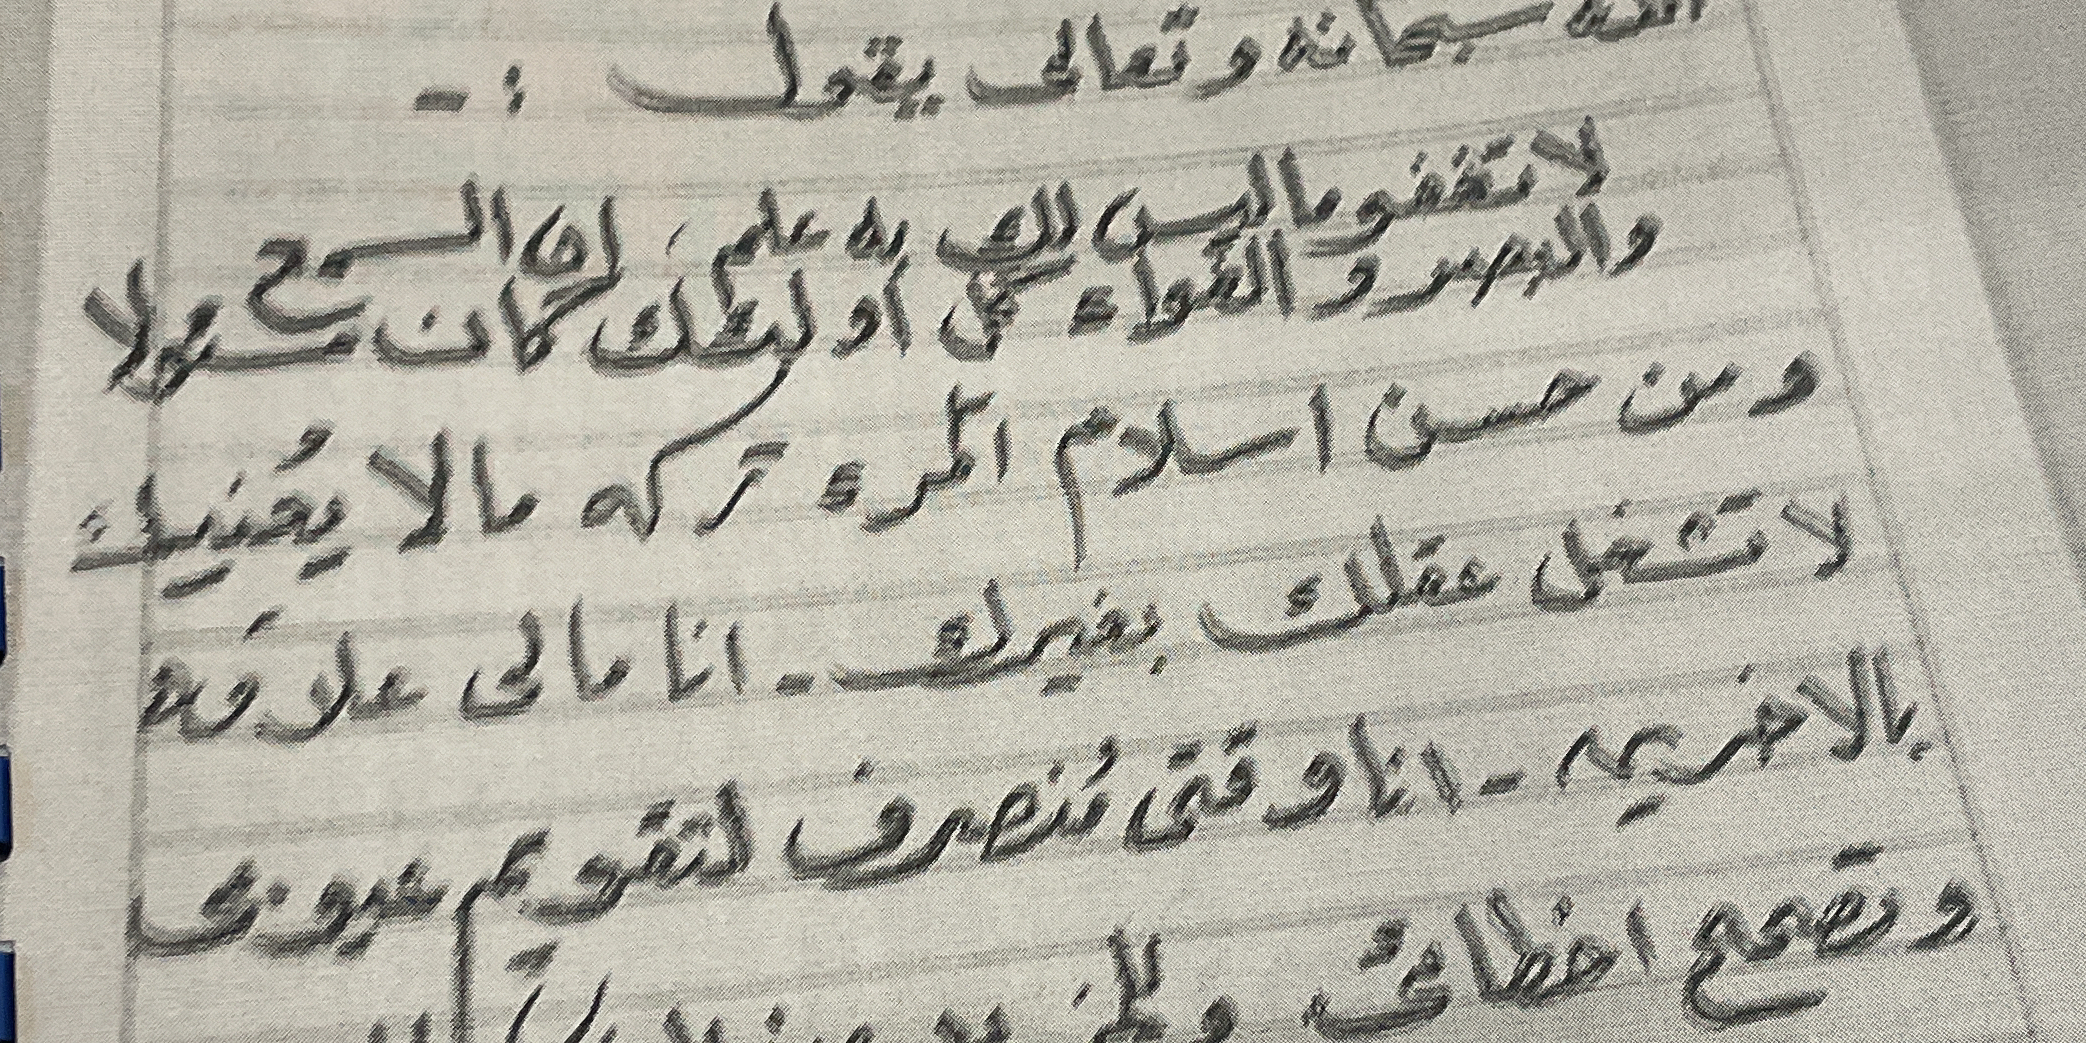 الله سبحانه وتعالى يقول :-
لا تقفو ما ليس لك به علم، إن السمع
والبصر و الفواء كل أولئك كان مسئولا
ومن حسن اسلام المرء تركه مالا يُعنيك
لا تشغل عقلك بغيرك - انا مالى علاقه
بالاخريه - انا وقتى مُنصرف لتقويم عيوبى
وتصحح اخطائى